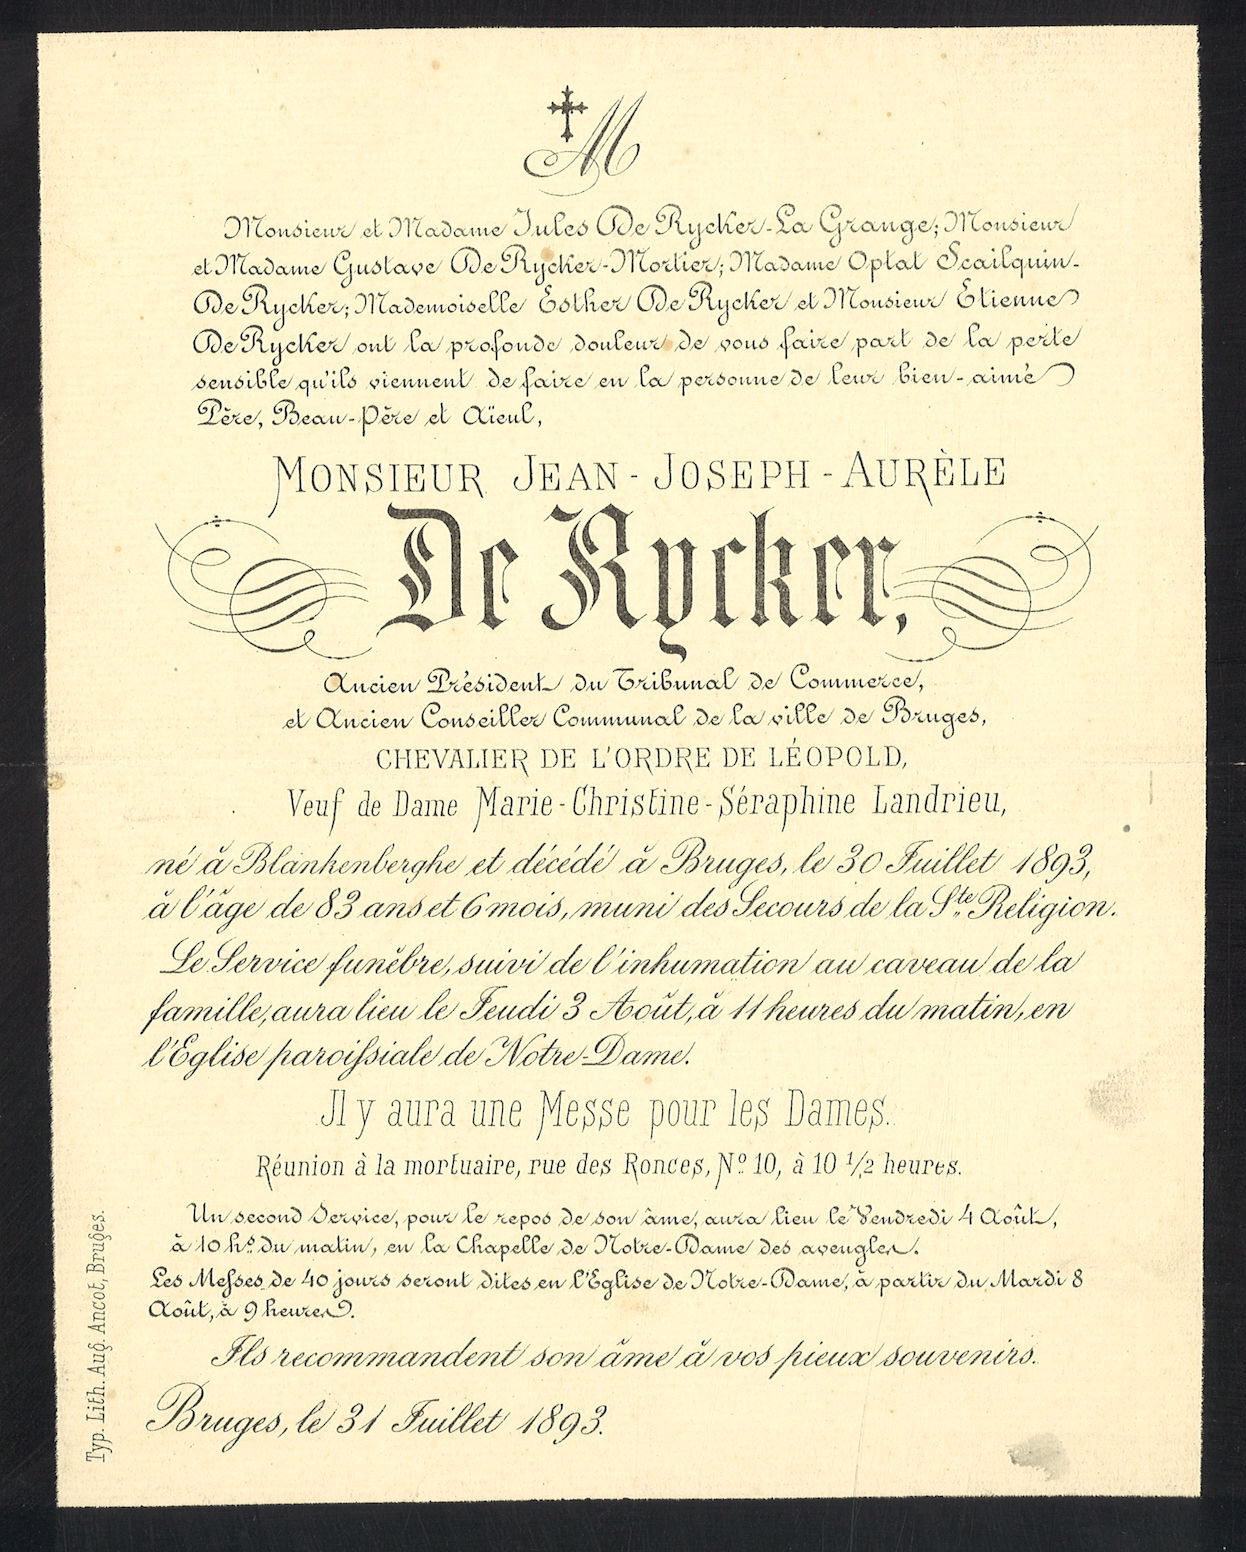 M
Monsieur et Madame Jules De Rycker-La Grange; Monsieur
et Madame Gustave De Rycker-Mortier; Madame Optat Scailquin-
De Rycker; Mademoiselle Esther De Rycker et Monsieur Etienne
De Rycker ont la profonde douleur de vous faire part de la perte
sensible qu'ils viennent de faire en la personne de leur bien-aimé
Père, Beau-père et Aïeul,
MONSIEUR JEAN-JOSEPH-AURÈLE
De Rycker,
Ancien Président du Tribunal de Commerce,
et Ancien Conseiller Communal de la ville de Bruges,
CHEVALIER DE L'ORDRE DE LÉOPOLD,
Veuf de Dame Marie-Christine-Séraphine Landrieu,
né à Blankenberghe et décédé à Bruges, le 30 Juillet 1893,
à l'âge de 83 ans et 6 mois, muni des Secours de la Ste Religion.
Le Service funèbre, suivi de l'inhumation au caveau de la
famille, aura lieu le Jeudi 3 Août, à 11 heures du matin, en
l'Eglise paroissiale de Notre-Dame.
Il y aura une Messe pour les Dames.
Réunion à la mortuaire, rue des Ronces, Nº 10, à 10 1/2 heures.
Un second Service, pour le repos de son âme, aura lieu le Vendredi 4 Août,
à 10 hs du matin, en la Chapelle de Notre-Dame des aveugles.
Les Messes de 40 jours seront dites en l'Eglise de Notre-Dame, à partir du Mardi 8
Août, à 9 heures.
Ils recommandent son âme à vos pieux souvenirs.
Bruges, le 31 Juillet 1893.
Typ. Lith. Aug. Ancot, Bruges.